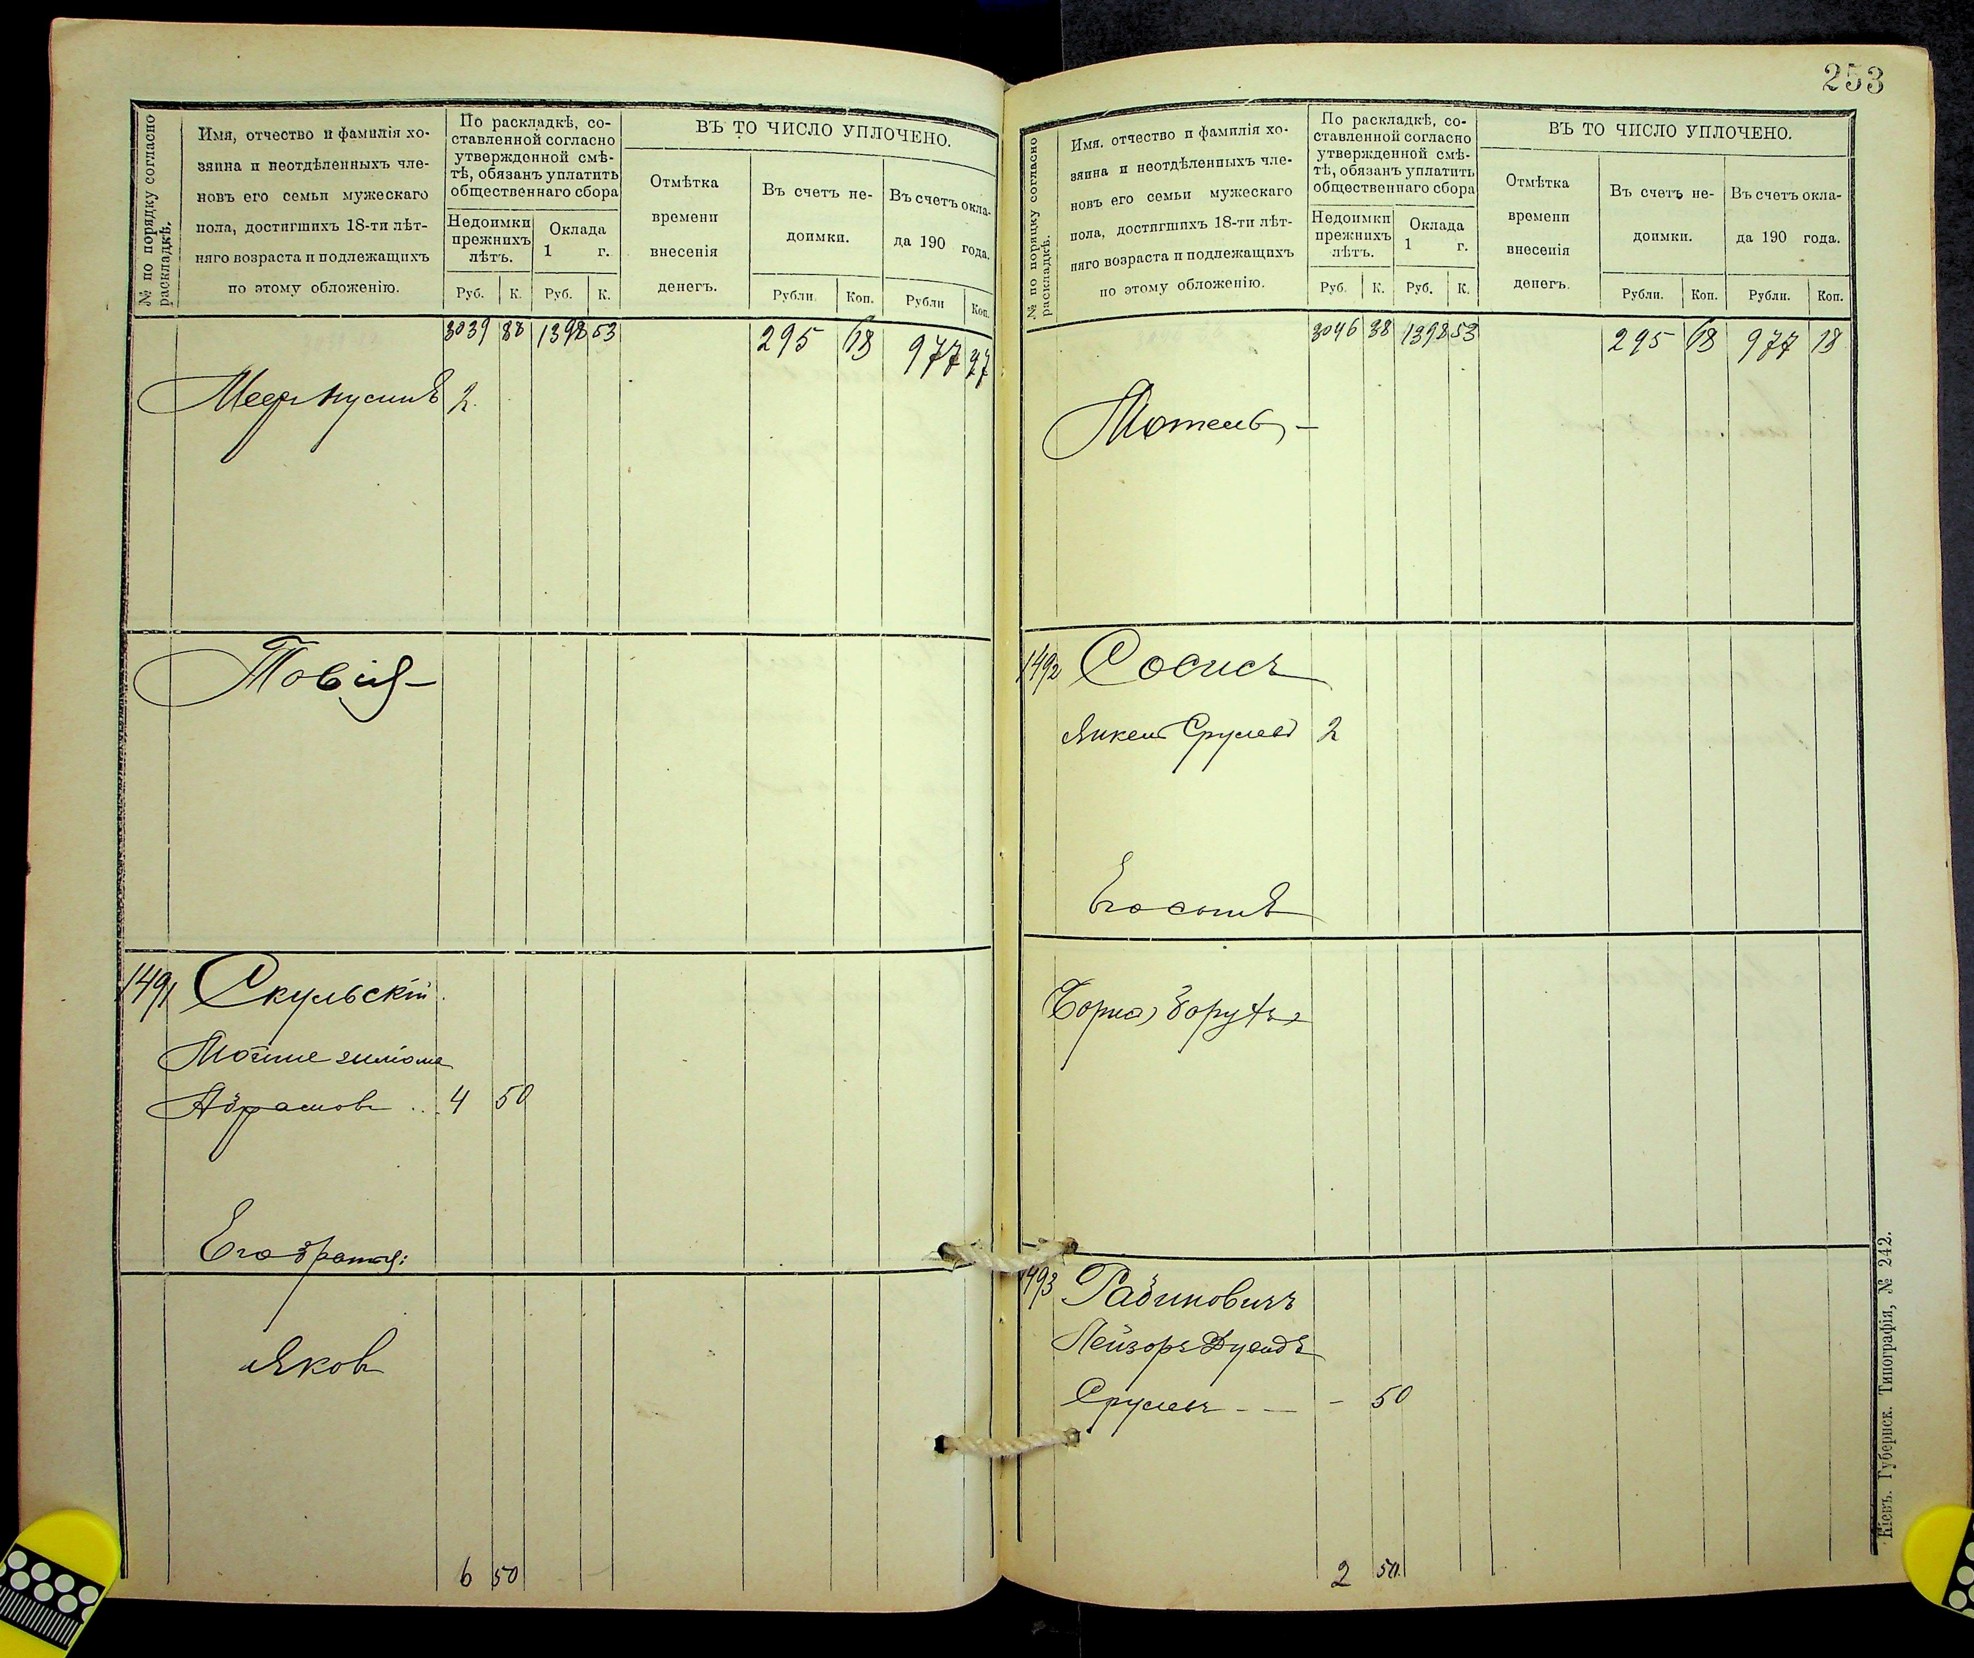 № по порядку согласно
раскладкѣ.
Имя, отчество и фамилія хо-
зяина и неотдѣленныхъ чле-
новъ его семьи мужескаго
пола, достигшихъ 18-ти лѣт-
няго возраста и подлежащихъ
по этому обложенію.
По раскладкѣ, со-
ставленной согласно
утвержденной смѣ-
тѣ, обязанъ уплатить
общественнаго сбора
Недоимки
прежнихъ
лѣтъ.
Оклада
1 г.
Руб. К. Руб. К.
ВЪ ТО ЧИСЛО УПЛОЧЕНО.
Отмѣтка
времени
внесенія
денегъ.
Въ счетъ не-
доимки.
Въ счетъ окла-
да 190 года.
Рубли. Коп. Рубли Коп.
3039 88 1398 53 295 68 977
2.
Товія
1491 Скульскій
Абрамовъ .. 4 50
Его братья:
Яковъ
6 50
253
№ по порядку согласно
раскладкѣ.
Имя. отчество и фамилія хо-
зяина и неотдѣленныхъ чле-
новъ его семьи мужескаго
пола, достигшихъ 18-ти лѣт-
няго возраста и подлежащихъ
по этому обложенію.
По раскладкѣ, со-
ставленной согласно
утвержденной смѣ-
тѣ, обязанъ уплатить
общественнаго сбора
Недоимки
прежнихъ
лѣтъ.
Оклада
1 г.
Руб. К. Руб. К.
ВЪ ТО ЧИСЛО УПЛОЧЕНО.
Отмѣтка
времени
внесенія
денегъ.
Въ счетъ не-
доимки.
Въ счетъ окла-
да 190 года.
Рубли. Коп. Рубли. Коп.
3046 38 1398 53 295 68 977 18
Мотель
1492 Сосисъ
Янкель Срулевъ 2
Его сынъ
1493 Рабиновичъ
Лейзоръ Дувидъ
Срулевъ - — - 50
2 50
Кіевъ. Губернск. Типографія, № 242.